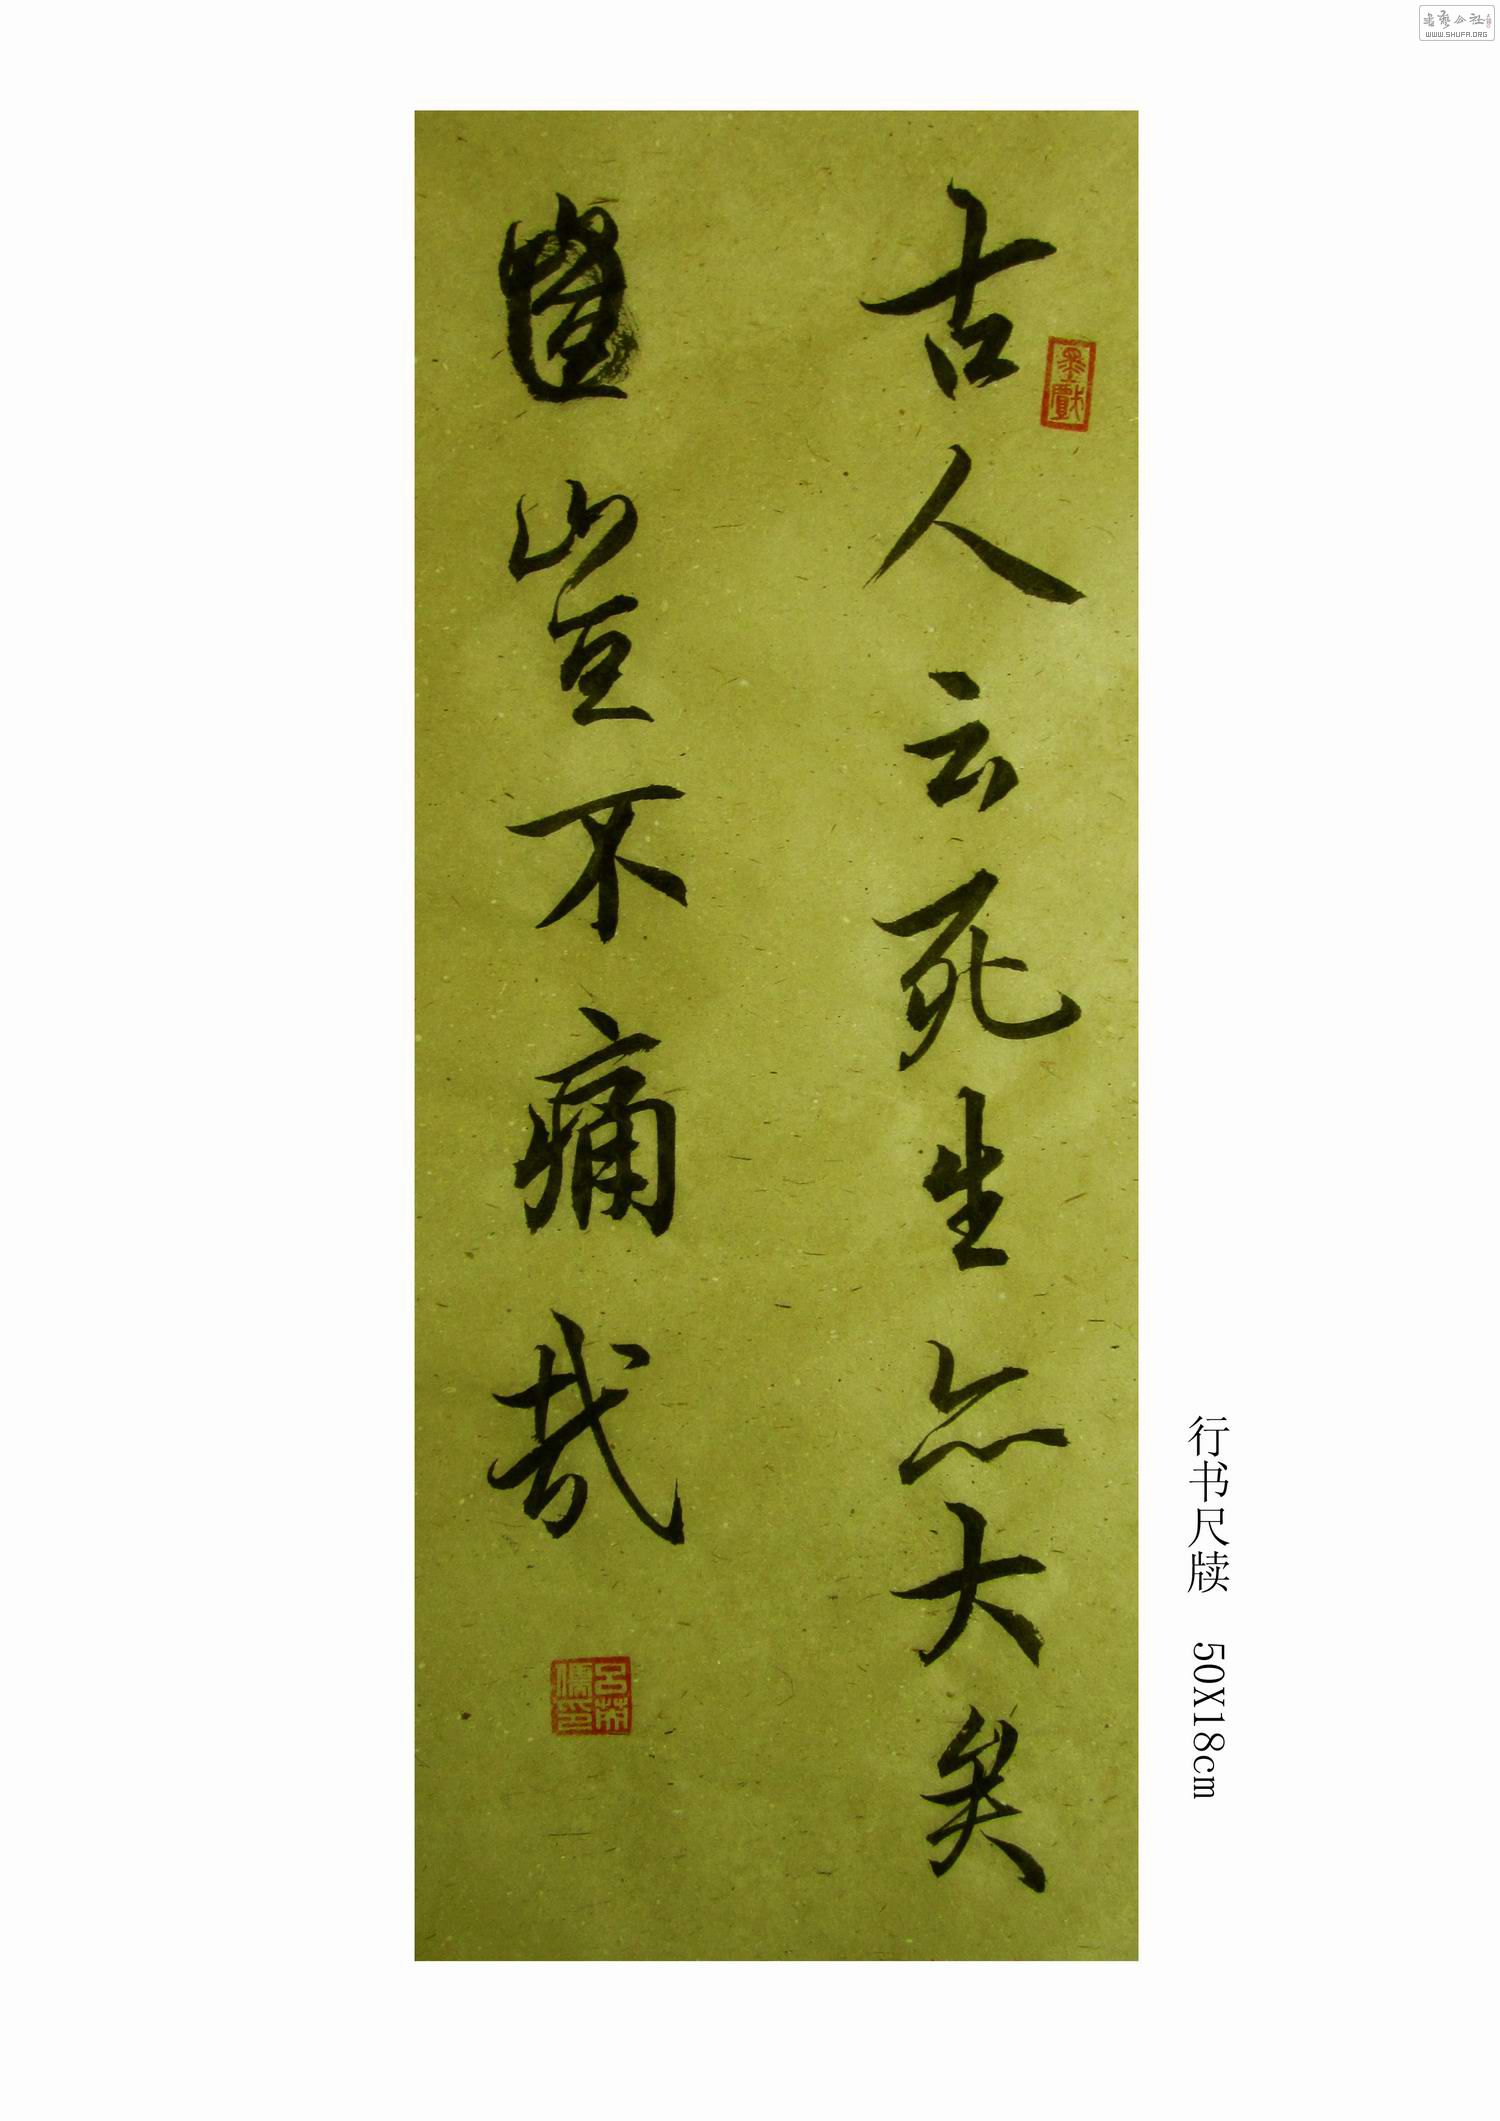 古人云死生亦大矣
豈不痛哉
墨戲
行书尺牍 50X18cm
书艺公社
WWW.SHUFA.ORG